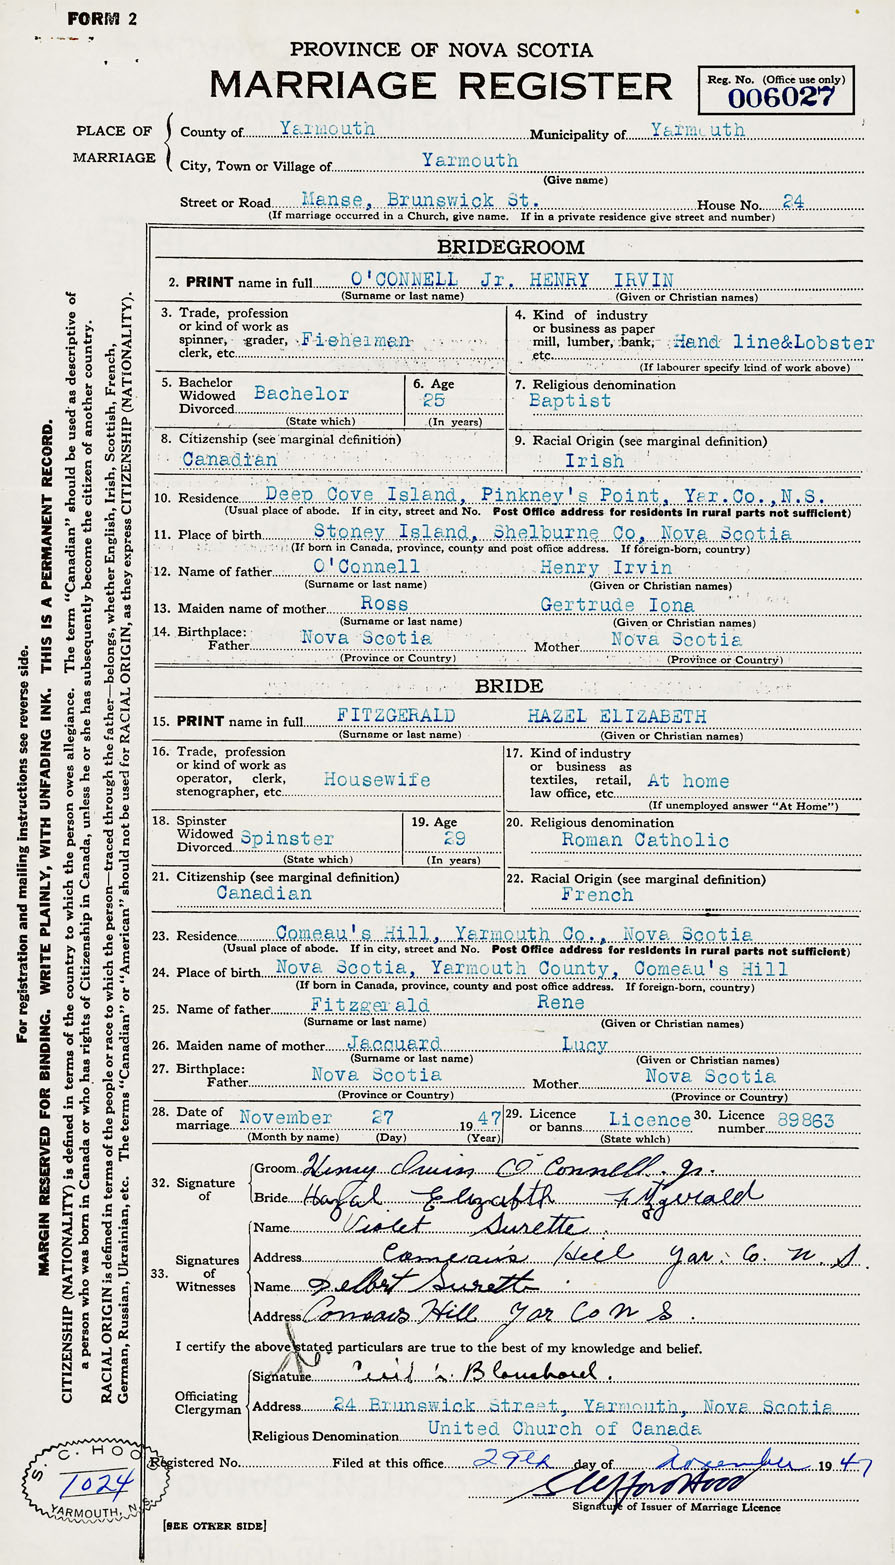 FORM 2
PROVINCE OF NOVA SCOTIA
MARRIAGE REGISTER
Reg. No. (Office use only)
006027
PLACE OF MARRIAGE
County of Yarmouth Municipality of Yarmouth
City, Town or Village of Yarmouth
(Give name)
Street or Road Manse, Brunswick St. House No. 24
(If marriage occurred in a Church, give name. If in a private residence give street and number)
BRIDEGROOM
2. PRINT name in full O'CONNELL Jr. HENRY IRVIN
(Surname or last name) (Given or Christian names)
3. Trade, profession or kind of work as spinner, grader, clerk, etc. Fisherman
4. Kind of industry or business as paper mill, lumber, bank, etc. Hand line&Lobster
(If labourer specify kind of work above)
5. Bachelor Widowed Divorced Bachelor
(State which)
6. Age 25
(In years)
7. Religious denomination
Baptist
8. Citizenship (see marginal definition)
Canadian
9. Racial Origin (see marginal definition)
Irish
10. Residence Deep Cove Island, Pinkney's Point, Yar.Co.,N.S.
(Usual place of abode. If in city, street and No. Post Office address for residents in rural parts not sufficient)
11. Place of birth Stoney Island, Shelburne Co, Nova Scotia
(If born in Canada, province, county and post office address. If foreign-born, country)
12. Name of father O'Connell Henry Irvin
(Surname or last name) (Given or Christian names)
13. Maiden name of mother Ross Gertrude Iona
(Surname or last name) (Given or Christian names)
14. Birthplace:
Father Nova Scotia Mother Nova Scotia
(Province or Country) (Province or Country)
BRIDE
15. PRINT name in full FITZGERALD HAZEL ELIZABETH
(Surname or last name) (Given or Christian names)
16. Trade, profession or kind of work as operator, clerk, stenographer, etc. Housewife
17. Kind of industry or business as textiles, retail, law office, etc. At home
(If unemployed answer "At Home")
18. Spinster Widowed Divorced Spinster
(State which)
19. Age 29
(In years)
20. Religious denomination
Roman Catholic
21. Citizenship (see marginal definition)
Canadian
22. Racial Origin (see marginal definition)
French
23. Residence Comeau's Hill, Yarmouth Co., Nova Scotia
(Usual place of abode. If in city, street and No. Post Office address for residents in rural parts not sufficient)
24. Place of birth Nova Scotia, Yarmouth County, Comeau's Hill
(If born in Canada, province, county and post office address. If foreign-born, country)
25. Name of father Fitzgerald Rene
(Surname or last name) (Given or Christian names)
26. Maiden name of mother Jacquard Lucy
(Surname or last name) (Given or Christian names)
27. Birthplace:
Father Nova Scotia Mother Nova Scotia
(Province or Country) (Province or Country)
28. Date of marriage November 27 1947
(Month by name) (Day) (Year)
29. Licence or banns Licence
(State which)
30. Licence number 89863
32. Signature of
Groom Henry Irvin O'Connell. Jr.
Bride Hazal Elizabeth Fitzgerald
33. Signatures of Witnesses
Name Violet Surette
Address Comeau's Hill Yar. Co. N. S.
Name Delbert Surette
Address Comeaus Hill Yar Co N S.
I certify the above stated particulars are true to the best of my knowledge and belief.
Officiating Clergyman
Signature Blanchard.
Address 24 Brunswick Street, Yarmouth, Nova Scotia
Religious Denomination United Church of Canada
Registered No. Filed at this office 29th day of November 1947
Signature of Issuer of Marriage Licence
[SEE OTHER SIDE]
For registration and mailing instructions see reverse side.
MARGIN RESERVED FOR BINDING. WRITE PLAINLY, WITH UNFADING INK. THIS IS A PERMANENT RECORD.
CITIZENSHIP (NATIONALITY) is defined in terms of the country to which the person owes allegiance. The term "Canadian" should be used as descriptive of
a person who was born in Canada or who has rights of Citizenship in Canada, unless he or she has subsequently become the citizen of another country.
RACIAL ORIGIN is defined in terms of the people or race to which the person—traced through the father—belongs, whether English, Irish, Scottish, French,
German, Russian, Ukrainian, etc. The terms "Canadian" or "American" should not be used for RACIAL ORIGIN, as they express CITIZENSHIP (NATIONALITY).
S. C. HOO
1024
YARMOUTH, N.